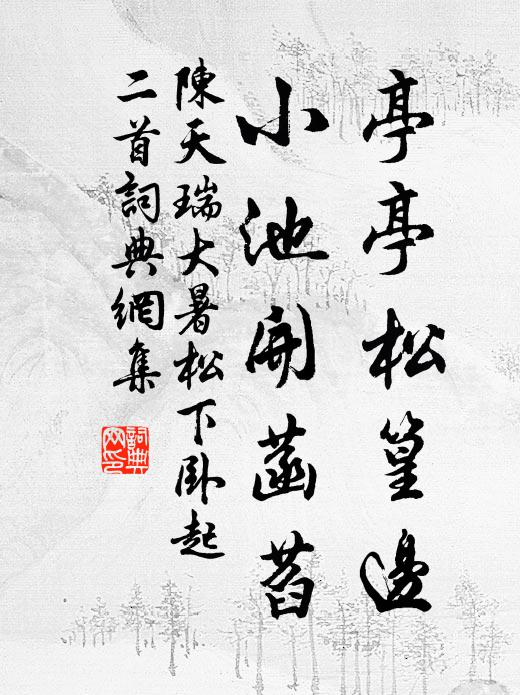 亭亭松篁邊
小池開菡萏
陳天瑞大暑松下卧起
二首詞典網集
詞典
网印